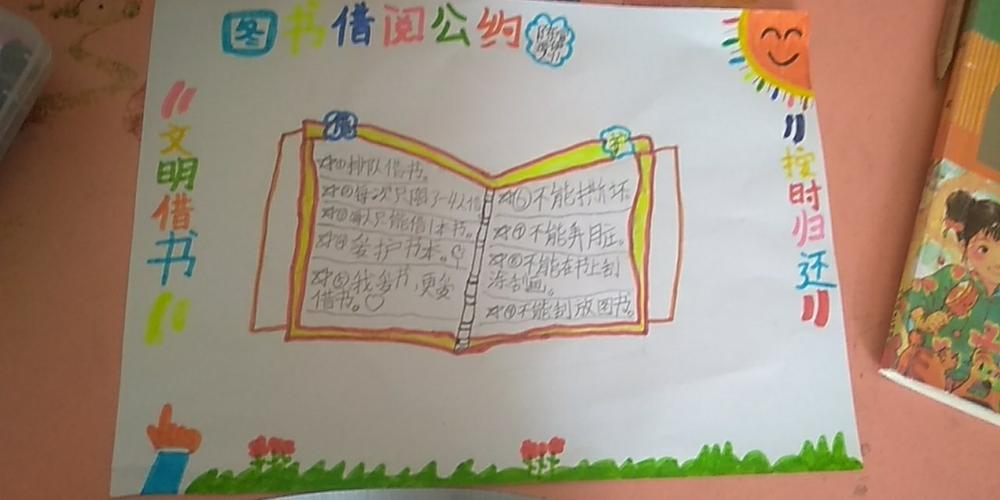 图书借阅公约
文明借书
按时归还
①排队借书。
②每次只限1人借
③每人只能借1本书。
④爱护书本。
⑤我爱书,更爱
借书。
⑥不能撕坏
⑦不能弄脏。
⑧不能在书上刻
涂刻画。
⑨不能乱放图书。